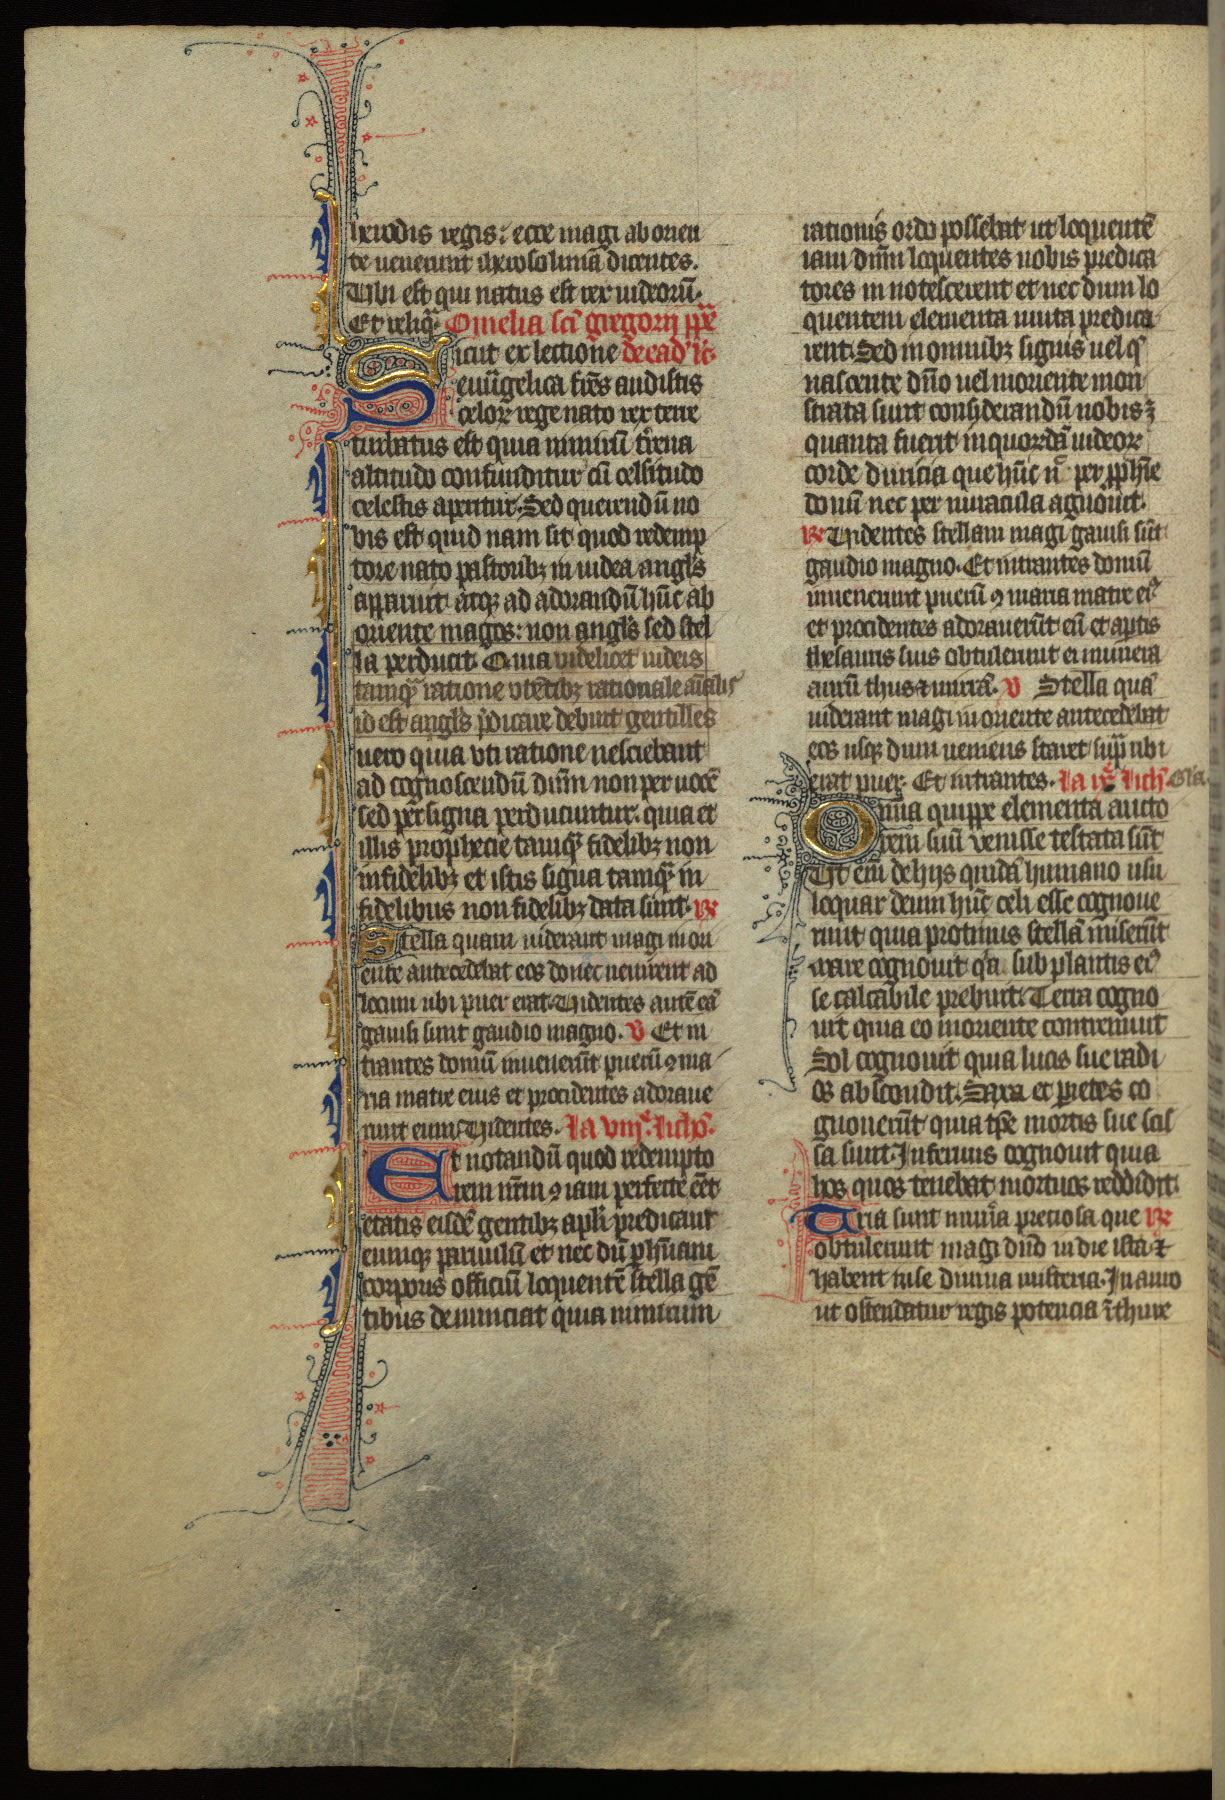 herodis regis: ecce magi ab orien
te uenerunt iherosolimā dicentes.
Vbi est qui natus est rex iudeorū.
Et reliq̄. Omelia sc̄i gregorij pp̄e
Sicut ex lectione de ead' lc̄
euūgelica fr̄es audistis
celoꝝ rege nato rex terre
turbatus est quia nimirū tr̄ena
altitudo confunditur cū celsitudo
celestis aperitur. Sed querendū no
bis est quid nam sit quod redemp
tore nato pastoribꝫ in iudea angl's
apparuit atqꝫ ad adorandū hūc ab
oriente magos: non angl's sed stel
la perducit. Quia videlicet iudeis
tamqꝫ ratione vtētibꝫ rationale aīal
id est angl's p̄dicare debuit gentilles
uero quia vti ratione nesciebant
ad cognoscendū dn̄m non per uocē
sed per signa perducuntur. quia et
illis prophecie tamqꝫ fidelibꝫ non
infidelibꝫ et istis signa tamqꝫ in
fidelibus non fidelibꝫ data sunt. ℞
Stella quam uiderant magi in ori
ente antecedebat eos donec uenirent ad
locum ubi puer erat. Videntes autē eā
gauisi sunt gaudio magno. V Et in
trantes domū inuenerūt puerū ꝯ ma
ria matre eius et procidentes adoraue
runt eum. Videntes. La viij. Nicho.
Et notandū quod redempto
rem nr̄m ꝯ iam perfecte eēt
etatis eisdē gentibꝫ apl'i predicant
eumqꝫ paruulū et nec dū p hūani
corporis officiū loquentē stella gē
tibus denunciat quia nimirum
rationis ordo possebat ut loquentē
iam dn̄m loquentes nobis predica
tores innotescerent et nec dum lo
quentem elementa muta predica
rent. Sed in omnibꝫ signis uel q̄
nascente dn̄o uel moriente mon
strata sunt considerandū nobis ꝫ
quanta fuerit in quordā iudeoꝝ
corde duricia que hūc n̄ per pphīe
donū nec per miracula agnouit.
℞ Videntes stellam magi gauisi sūt
gaudio magno. Et intrantes domū
inuenerunt puerū ꝯ maria matre ei'
et procidentes adorauerūt eū et aptis
thesauris suis obtulerunt ei munera
aurū thus ⁊ mirrā. V Stella quā
uiderant magi in oriente antecedebat
eos usqꝫ dum ueniens staret sup̄ ubi
erat puer. Et intrantes. La ix. Nich. Gl'a.
Omnia quippe elementa aucto
rem suū venisse testata sūt
Vt em̄ de hijs quiddā humano usu
loquar deum hūc celi esse cognoue
runt quia protinus stellā miserūt
mare cognouit q'a sub plantis ei'
se calcabile prebuit. Terra cogno
uit quia eo moriente contremuit
Sol cognouit quia lucis sue radi
os abscondit. Saxa et parietes co
gnouerūt quia tp̄e mortis sue scis
sa sunt. Infernus cognouit quia
hos quos tenebat mortuos reddidit.
Tria sunt mun'a preciosa que ℞
obtulerunt magi dn̄o in die ista ⁊
habent in se diuina misteria. In auro
ut ostendatur regis potencia ī thure